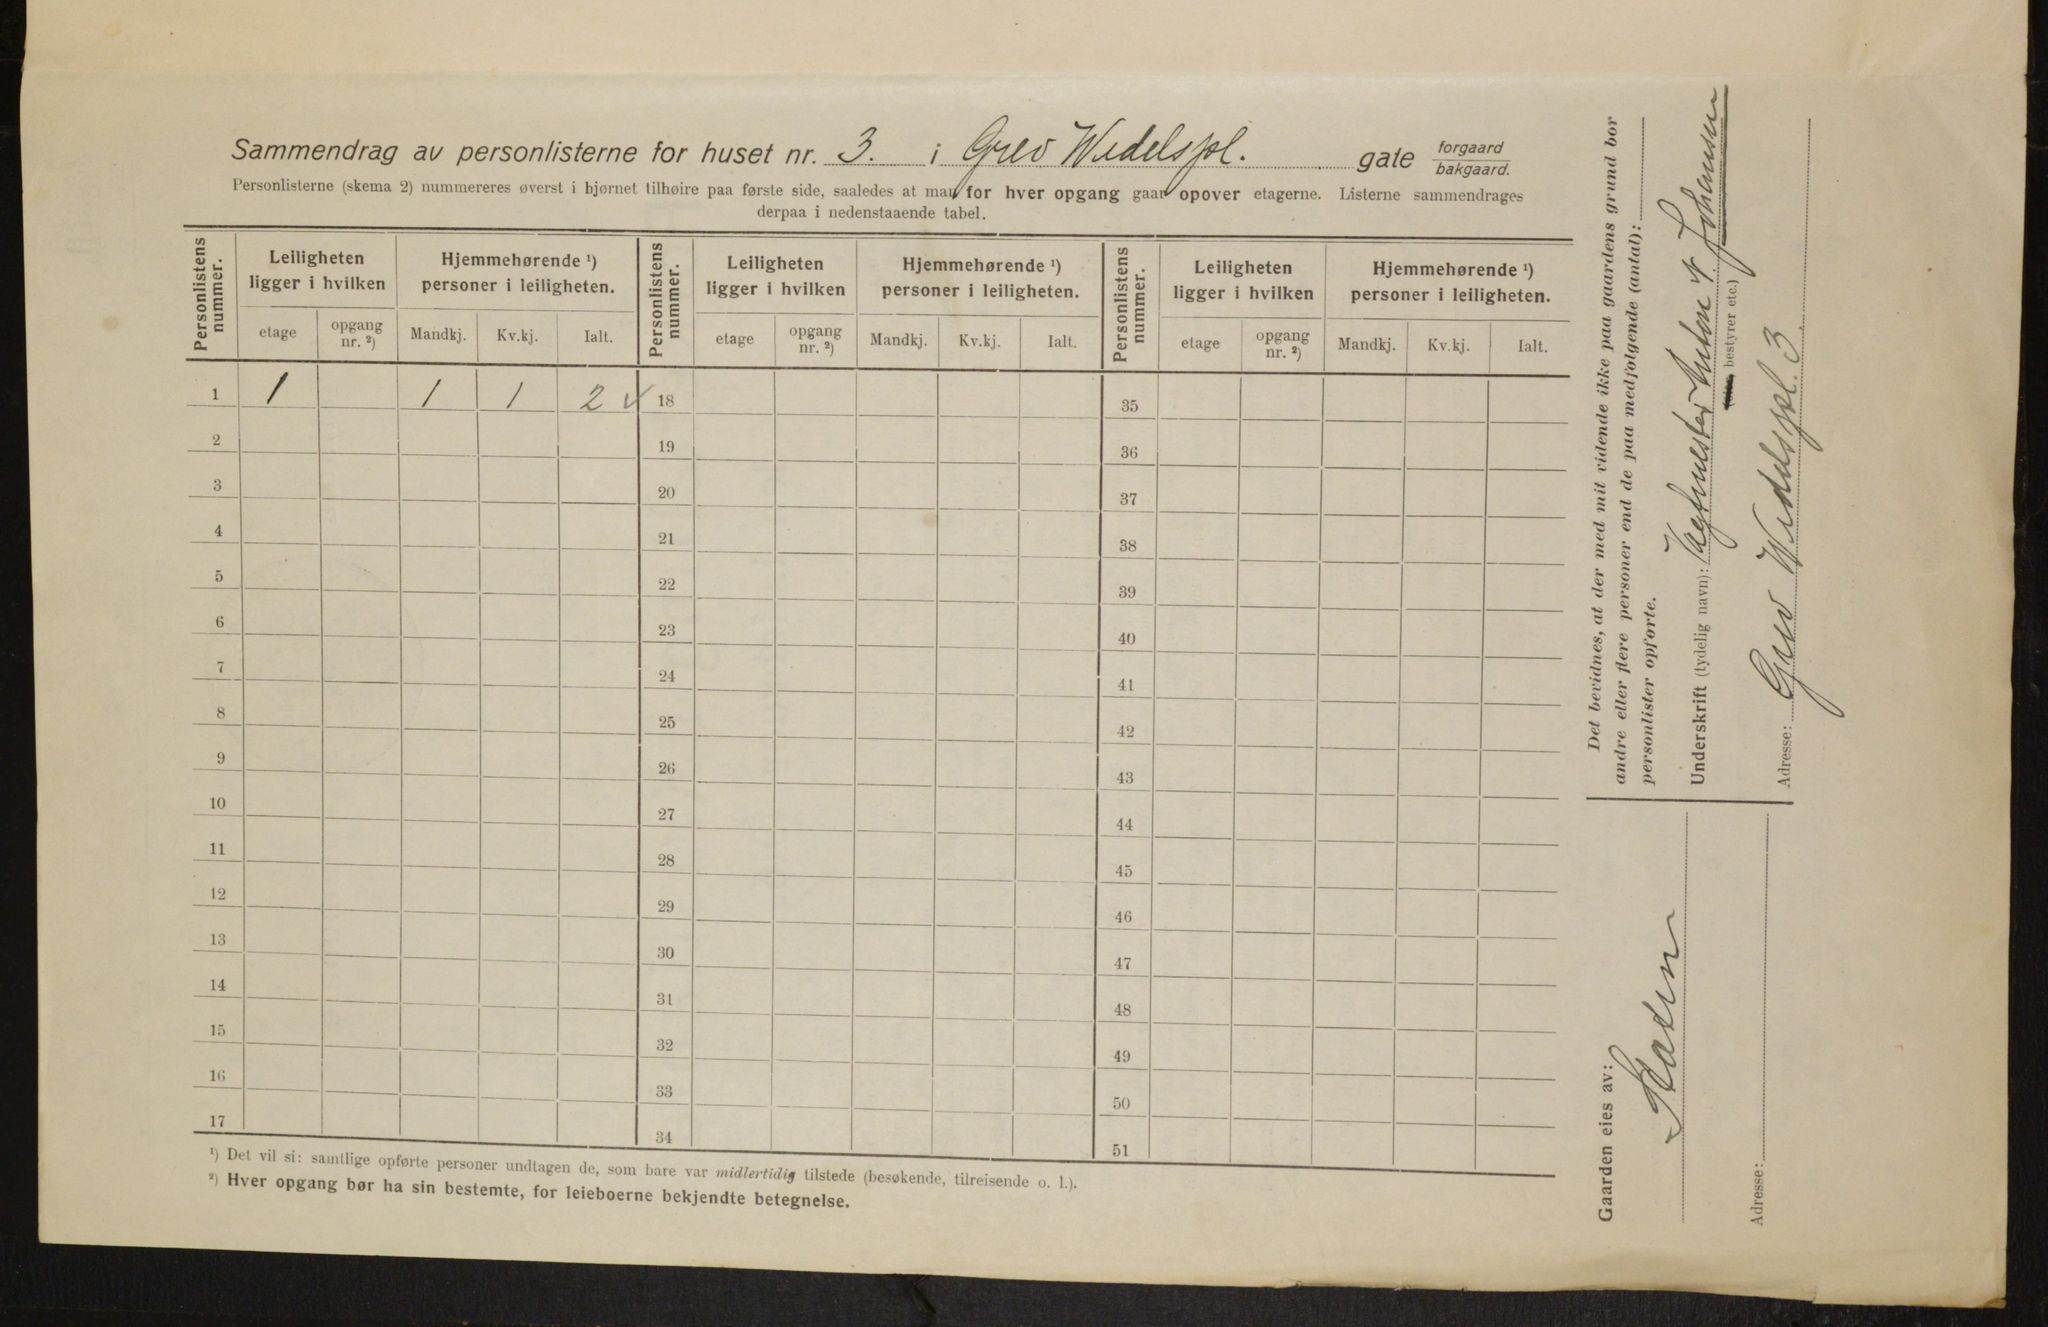 Sammendrag av personlisterne for huset nr. 3. i Grev Wedelspl. gate forgaard bakgaard.
Personlisterne (skema 2) nummereres øverst i hjørnet tilhøire paa første side, saaledes at man for hver opgang gaar opover etagerne. Listerne sammendrages
derpaa i nedenstaaende tabel.
Personlistens nummer. Leiligheten ligger i hvilken Hjemmehørende ¹) personer i leiligheten. Personlistens nummer. Leiligheten ligger i hvilken Hjemmehørende ¹) personer i leiligheten. Personlistens nummer. Leiligheten ligger i hvilken Hjemmehørende ¹) personer i leiligheten.
etage opgang nr. ²) Mandkj. Kv.kj. Ialt. etage opgang nr. ²) Mandkj. Kv.kj. Ialt. etage opgang nr. ²) Mandkj. Kv.kj. Ialt.
1 1 1 1 2 ✓ 18 35
2 19 36
3 20 37
4 21 38
5 22 39
6 23 40
7 24 41
8 25 42
9 26 43
10 27 44
11 28 45
12 29 46
13 30 47
14 31 48
15 32 49
16 33 50
17 34 51
¹) Det vil si: samtlige opførte personer undtagen de, som bare var midlertidig tilstede (besøkende, tilreisende o. l.).
²) Hver opgang bør ha sin bestemte, for leieboerne bekjendte betegnelse.
Det bevidnes, at der med mit vidende ikke paa gaardens grund bor
andre eller flere personer end de paa medfolgende (antal):
personlister opførte.
Underskrift (tydelig navn): Vagtmester Anton Johansen
bestyrer etc.)
Adresse: Grev Wedelspl. 3
Gaarden eies av:
Staten
Adresse: